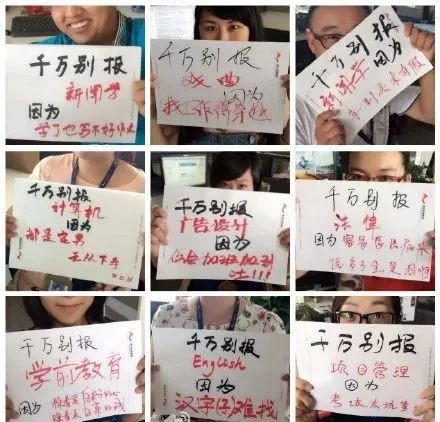 千万别报
新闻学
因为
学了也写不好作文
千万别报
戏曲
因为
找工作得穿越
千万别报
新闻学
因为
千万别报
计算机
因为
都是宅男
无从下手
千万别报
广告设计
因为
你会加班加到
吐!!!
千万别报
法律
因为
千万别报
学前教育
因为
千万别报
English
因为
汉字(子)难找
千万别报
项目管理
因为
老板太坑爹